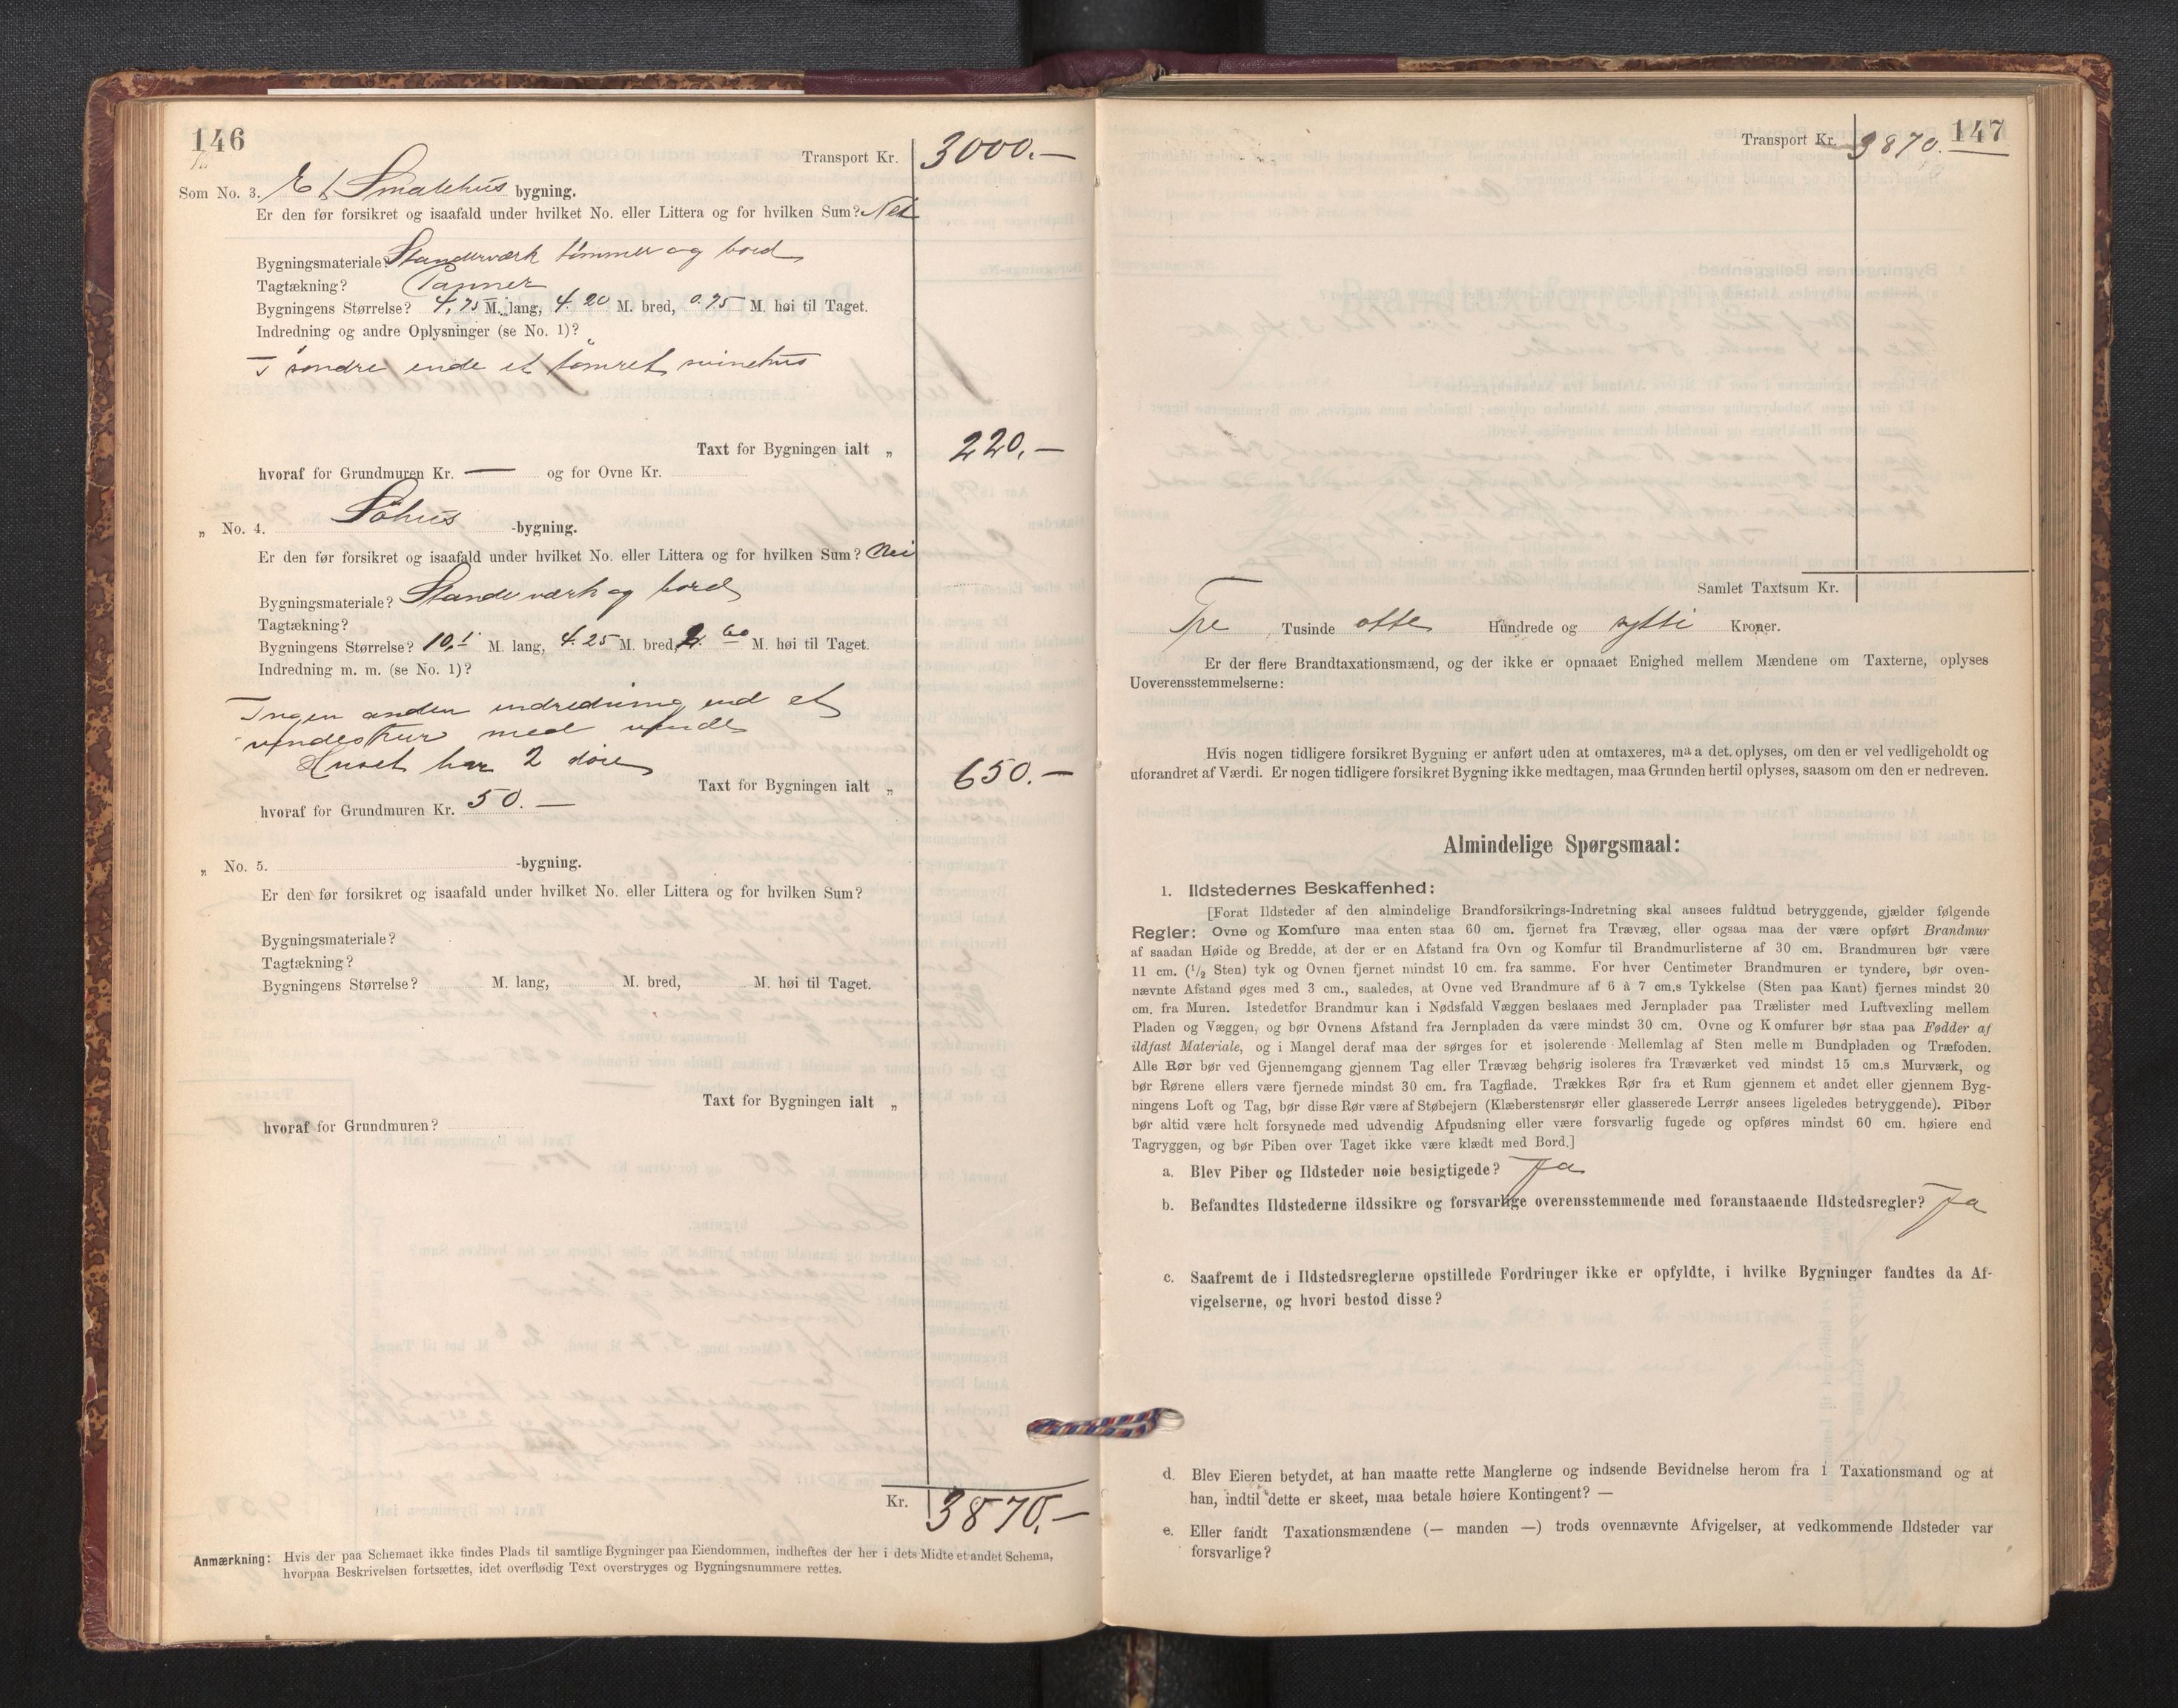 146
Transport Kr. 3000.—
Som No. 3. Et Smalehus bygning.
Er den før forsikret og isaafald under hvilket No. eller Littera og for hvilken Sum? Nei
Bygningsmateriale? Standerværk tømmer og bord
Tagtækning? Panner
Bygningens Størrelse? 4,75 M. lang, 4.20 M. bred, 0.95 M. høi til Taget.
Indredning og andre Oplysninger (se No. 1)?
I søndre ende et tømret svinehus
Taxt for Bygningen ialt „ 220,—
hvoraf for Grundmuren Kr. — og for Ovne Kr.
„ No. 4. Søhus -bygning.
Er den før forsikret og isaafald under hvilket No. eller Littera og for hvilken Sum? Nei
Bygningsmateriale? Standeværk og bord
Tagtækning?
Bygningens Størrelse? 10,5 M. lang, 4.25 M. bred, 2.60 M. høi til Taget.
Indredning m. m. (se No. 1)?
Ingen anden indredning end et
med
Huset har 2 døre
Taxt for Bygningen ialt „ 650.—
hvoraf for Grundmuren Kr. 50.—
„ No. 5. -bygning.
Er den før forsikret og isaafald under hvilket No. eller Littera og for hvilken Sum?
Bygningsmateriale?
Tagtækning?
Bygningens Størrelse? M. lang, M. bred, M. høi til Taget.
Taxt for Bygningen ialt „
hvoraf for Grundmuren?
Kr. 3870,—
Anmærkning: Hvis der paa Schemaet ikke findes Plads til samtlige Bygninger paa Eiendommen, indheftes der her i dets Midte et andet Schema,
hvorpaa Beskrivelsen fortsættes, idet overflødig Text overstryges og Bygningsnummere rettes.
147
Transport Kr. 3870.
Samlet Taxtsum Kr.
Tre Tusinde otte Hundrede og sytti Kroner.
Er der flere Brandtaxationsmænd, og der ikke er opnaaet Enighed mellem Mændene om Taxterne, oplyses
Uoverensstemmelserne:
Hvis nogen tidligere forsikret Bygning er anført uden at omtaxeres, maa det oplyses, om den er vel vedligeholdt og
uforandret af Værdi. Er nogen tidligere forsikret Bygning ikke medtagen, maa Grunden hertil oplyses, saasom om den er nedreven.
Almindelige Spørgsmaal:
1. Ildstedernes Beskaffenhed:
[Forat Ildsteder af den almindelige Brandforsikrings-Indretning skal ansees fuldtud betryggende, gjælder følgende
Regler: Ovne og Komfure maa enten staa 60 cm. fjernet fra Trævæg, eller ogsaa maa der være opført Brandmur
af saadan Høide og Bredde, at der er en Afstand fra Ovn og Komfur til Brandmurlisterne af 30 cm. Brandmuren bør være
11 cm. (1/2 Sten) tyk og Ovnen fjernet mindst 10 cm. fra samme. For hver Centimeter Brandmuren er tyndere, bør oven-
nævnte Afstand øges med 3 cm., saaledes, at Ovne ved Brandmure af 6 à 7 cm.s Tykkelse (Sten paa Kant) fjernes mindst 20
cm. fra Muren. Istedetfor Brandmur kan i Nødsfald Væggen beslaaes med Jernplader paa Trælister med Luftvexling mellem
Pladen og Væggen, og bør Ovnens Afstand fra Jernpladen da være mindst 30 cm. Ovne og Komfurer bør staa paa Fødder af
ildfast Materiale, og i Mangel deraf maa der sørges for et isolerende Mellemlag af Sten mellem Bundpladen og Træfoden.
Alle Rør bør ved Gjennemgang gjennem Tag eller Trævæg behørig isoleres fra Træværket ved mindst 15 cm.s Murværk, og
bør Rørene ellers være fjernede mindst 30 cm. fra Tagflade. Trækkes Rør fra et Rum gjennem et andet eller gjennem Byg-
ningens Loft og Tag, bør disse Rør være af Støbejern (Klæberstensrør eller glasserede Lerrør ansees ligeledes betryggende). Piber
bør altid være helt forsynede med udvendig Afpudsning eller være forsvarlig fugede og opføres mindst 60 cm. høiere end
Tagryggen, og bør Piben over Taget ikke være klædt med Bord.]
a. Blev Piber og Ildsteder nøie besigtigede? Ja
b. Befandtes Ildstederne ildssikre og forsvarlige overensstemmende med foranstaaende Ildstedsregler? Ja
c. Saafremt de i Ildstedsreglerne opstillede Fordringer ikke er opfyldte, i hvilke Bygninger fandtes da Af-
vigelserne, og hvori bestod disse?
d. Blev Eieren betydet, at han maatte rette Manglerne og indsende Bevidnelse herom fra 1 Taxationsmand og at
han, indtil dette er skeet, maa betale høiere Kontingent? —
e. Eller fandt Taxationsmændene (— manden —) trods ovennævnte Afvigelser, at vedkommende Ildsteder var
forsvarlige?